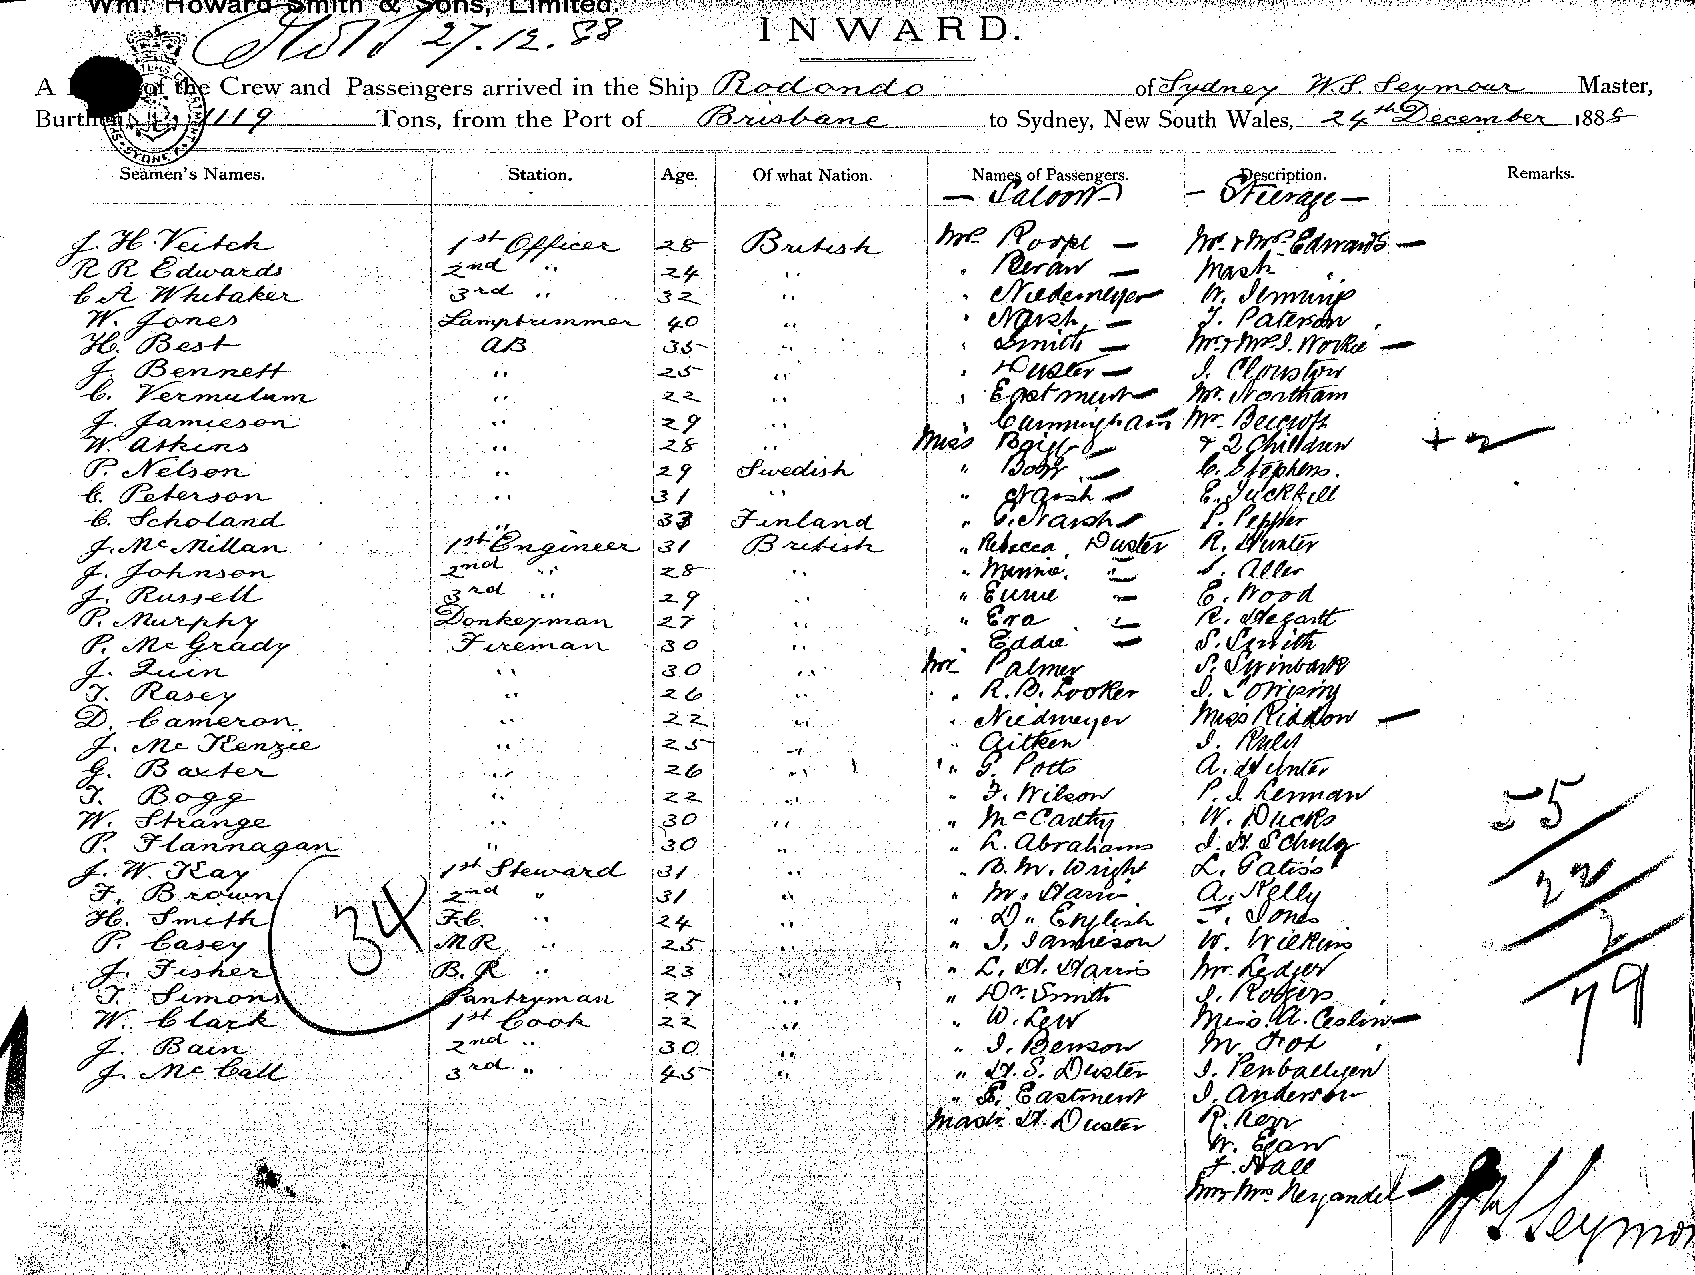 Wm. Howard Smith & Sons, Limited.
27.12.88
INWARD.
A of the Crew and Passengers arrived in the Ship Rodondo of Sydney W.S. Seymour Master,
Burthen 1119 Tons, from the Port of Brisbane to Sydney, New South Wales, 24th December 1888
Seamen's Names. Station. Age. Of what Nation. Names of Passengers. Description. Remarks.
— Saloon — — Steerage —
J. H. Veitch 1st Officer 28 British Mrs Roope — Mr & Mrs Edwards —
R R Edwards 2nd " 24 " " — Mast "
C A Whitaker 3rd " 32 " " Niedemeyer W. Jenning
W. Jones Lamptrimmer 40 " " Narsh — T. Paterson
H. Best AB 35 " " Smith — Mr & Mrs J. —
J. Bennett " 25 " " Duster — J. Clouston
C. Vermulum " 22 " " Eastment — Mr. Northam
J. Jamieson " 29 " " Cunningham Mr. Beecroft
W. Atkins " 28 " Miss — & 2 Children + 2
P. Nelson " 29 Swedish " — C. Stephens.
C. Peterson " 31 " " Narsh — E. Tuckfield
C. Scholand " 33 Finland " Narsh — P. Pepper
J. McMillan 1st Engineer 31 British " Rebecca Duster R. Hunter
J. Johnson 2nd " 28 " " Minnie " — Aller
J. Russell 3rd " 29 " " " — E. Wood
P. Murphy Donkeyman 27 " " Eva " — R. Hogarth
P. McGrady Fireman 30 " " Eddie — S. Smith
J. Quin " 30 " Mr Palmer S. Swinbank
T. Rasey " 26 " " R. B. Looker J.
D. Cameron " 22 " " Niedmeyer Miss Riddon —
J. McKenzie " 25 " " Aitken J.
G. Baxter " 26 " " G. Potts A. Hunter
T. Bogg " 22 " " F. Wilson P. J. Lerman
W. Strange " 30 " " McCarthy W. Ducks
P. Flannagan " 30 " " L. Abrahams J. H. Schulz
J. W. Kay 1st Steward 31 " " B. M. Wright L.
F. Brown 2nd " 31 " " M. Harris A. Kelly
H. Smith F.C. " 24 " " D. English Jones
P. Casey MR " 25 " " J. Jamieson W. Wilkins
J. Fisher B.R " 23 " " L. H. Harris Mr. Ledger
T. Simons Pantryman 27 " " Dr. Smith J. Rogers
W. Clark 1st Cook 22 " " W. Lew Miss. A. Ceslin —
J. Bain 2nd " 30 " " J. Benson M Fox
J. McCall 3rd " 45 " " H. S. Duster J.
" E. Eastment J. Anderson
Mast. H. Duster R. Kerr
W. Egan
F. Hall
Mr & Mrs —
34
55
22
2
79
Seymour